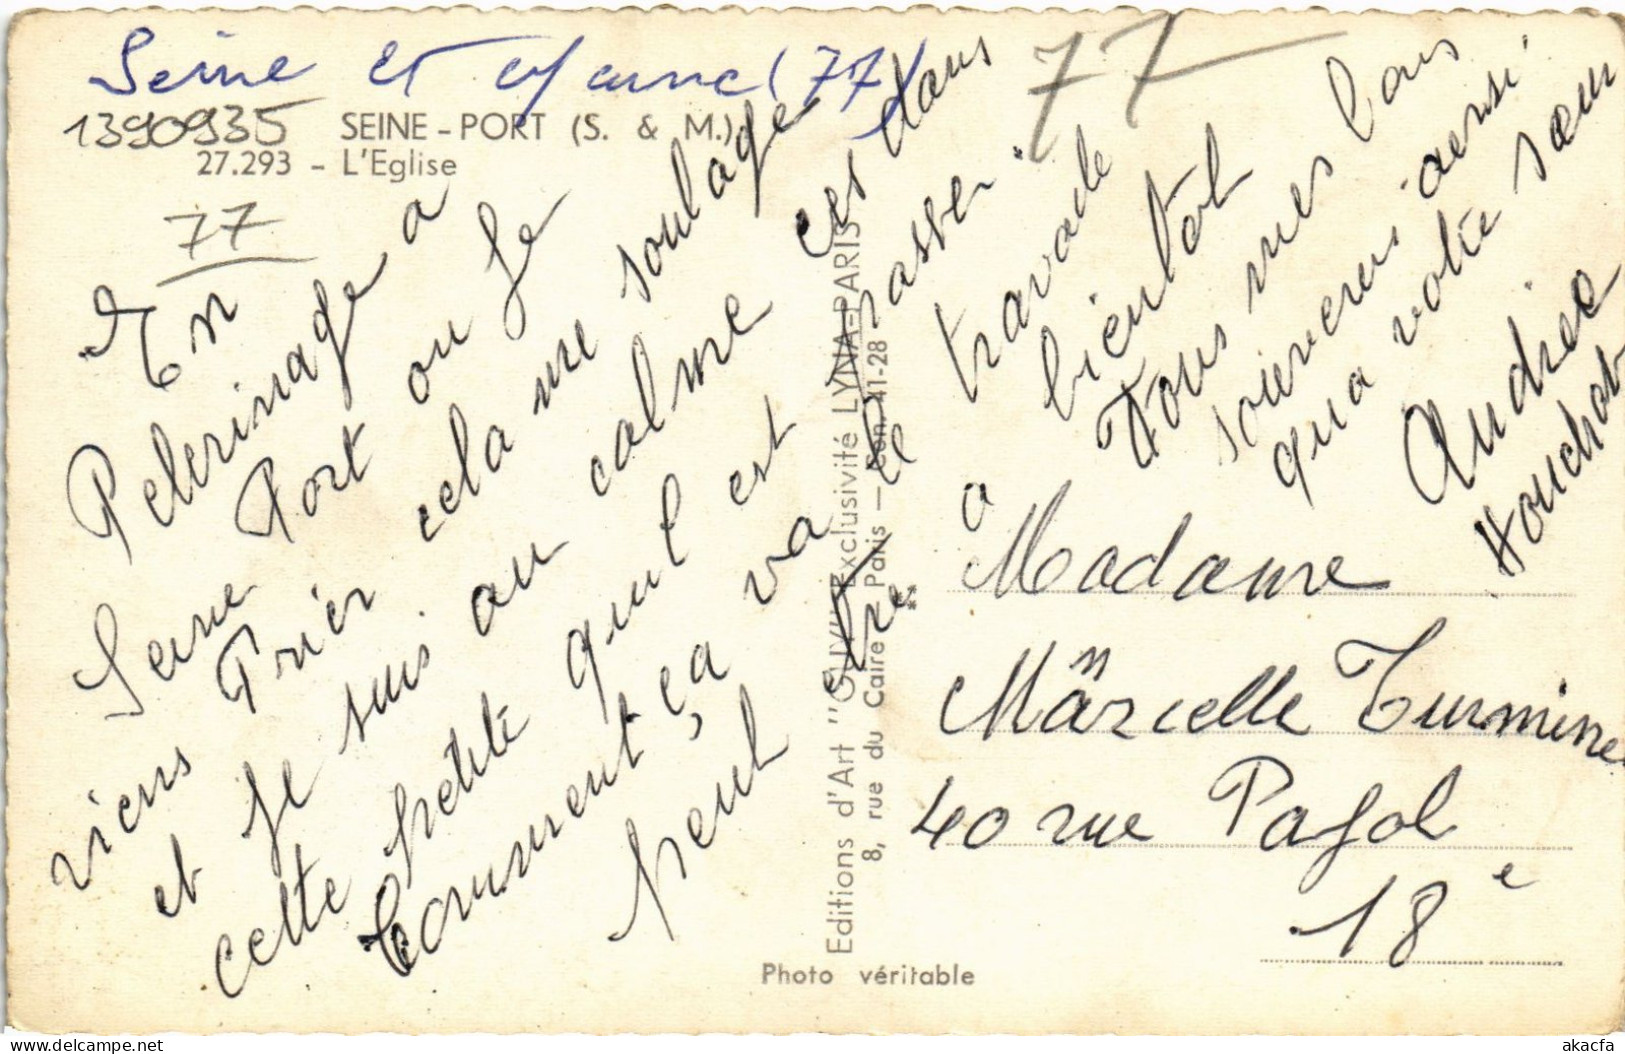 Seine et Marne (77)
1390935 SEINE - PORT (S. & M.)
27.293 - L'Eglise
77
77
En
Pelerinage a
Seine Port ou Je
viens Prier cela me soulage
et Je suis au calme ces dans
cette petite quil est passer
Comment ça va le travade
peut être a bientot
Tous mes bons
souvenirs ainsi
qua votre sœur
Andrée
Houchat
Editions d'Art "GUY" Exclusivité LYNA-PARIS
8, rue du Caire Paris - Cen. 41-28
Madame
Marcelle Turmine
40 rue Pajol
18e
Photo véritable
akacfa